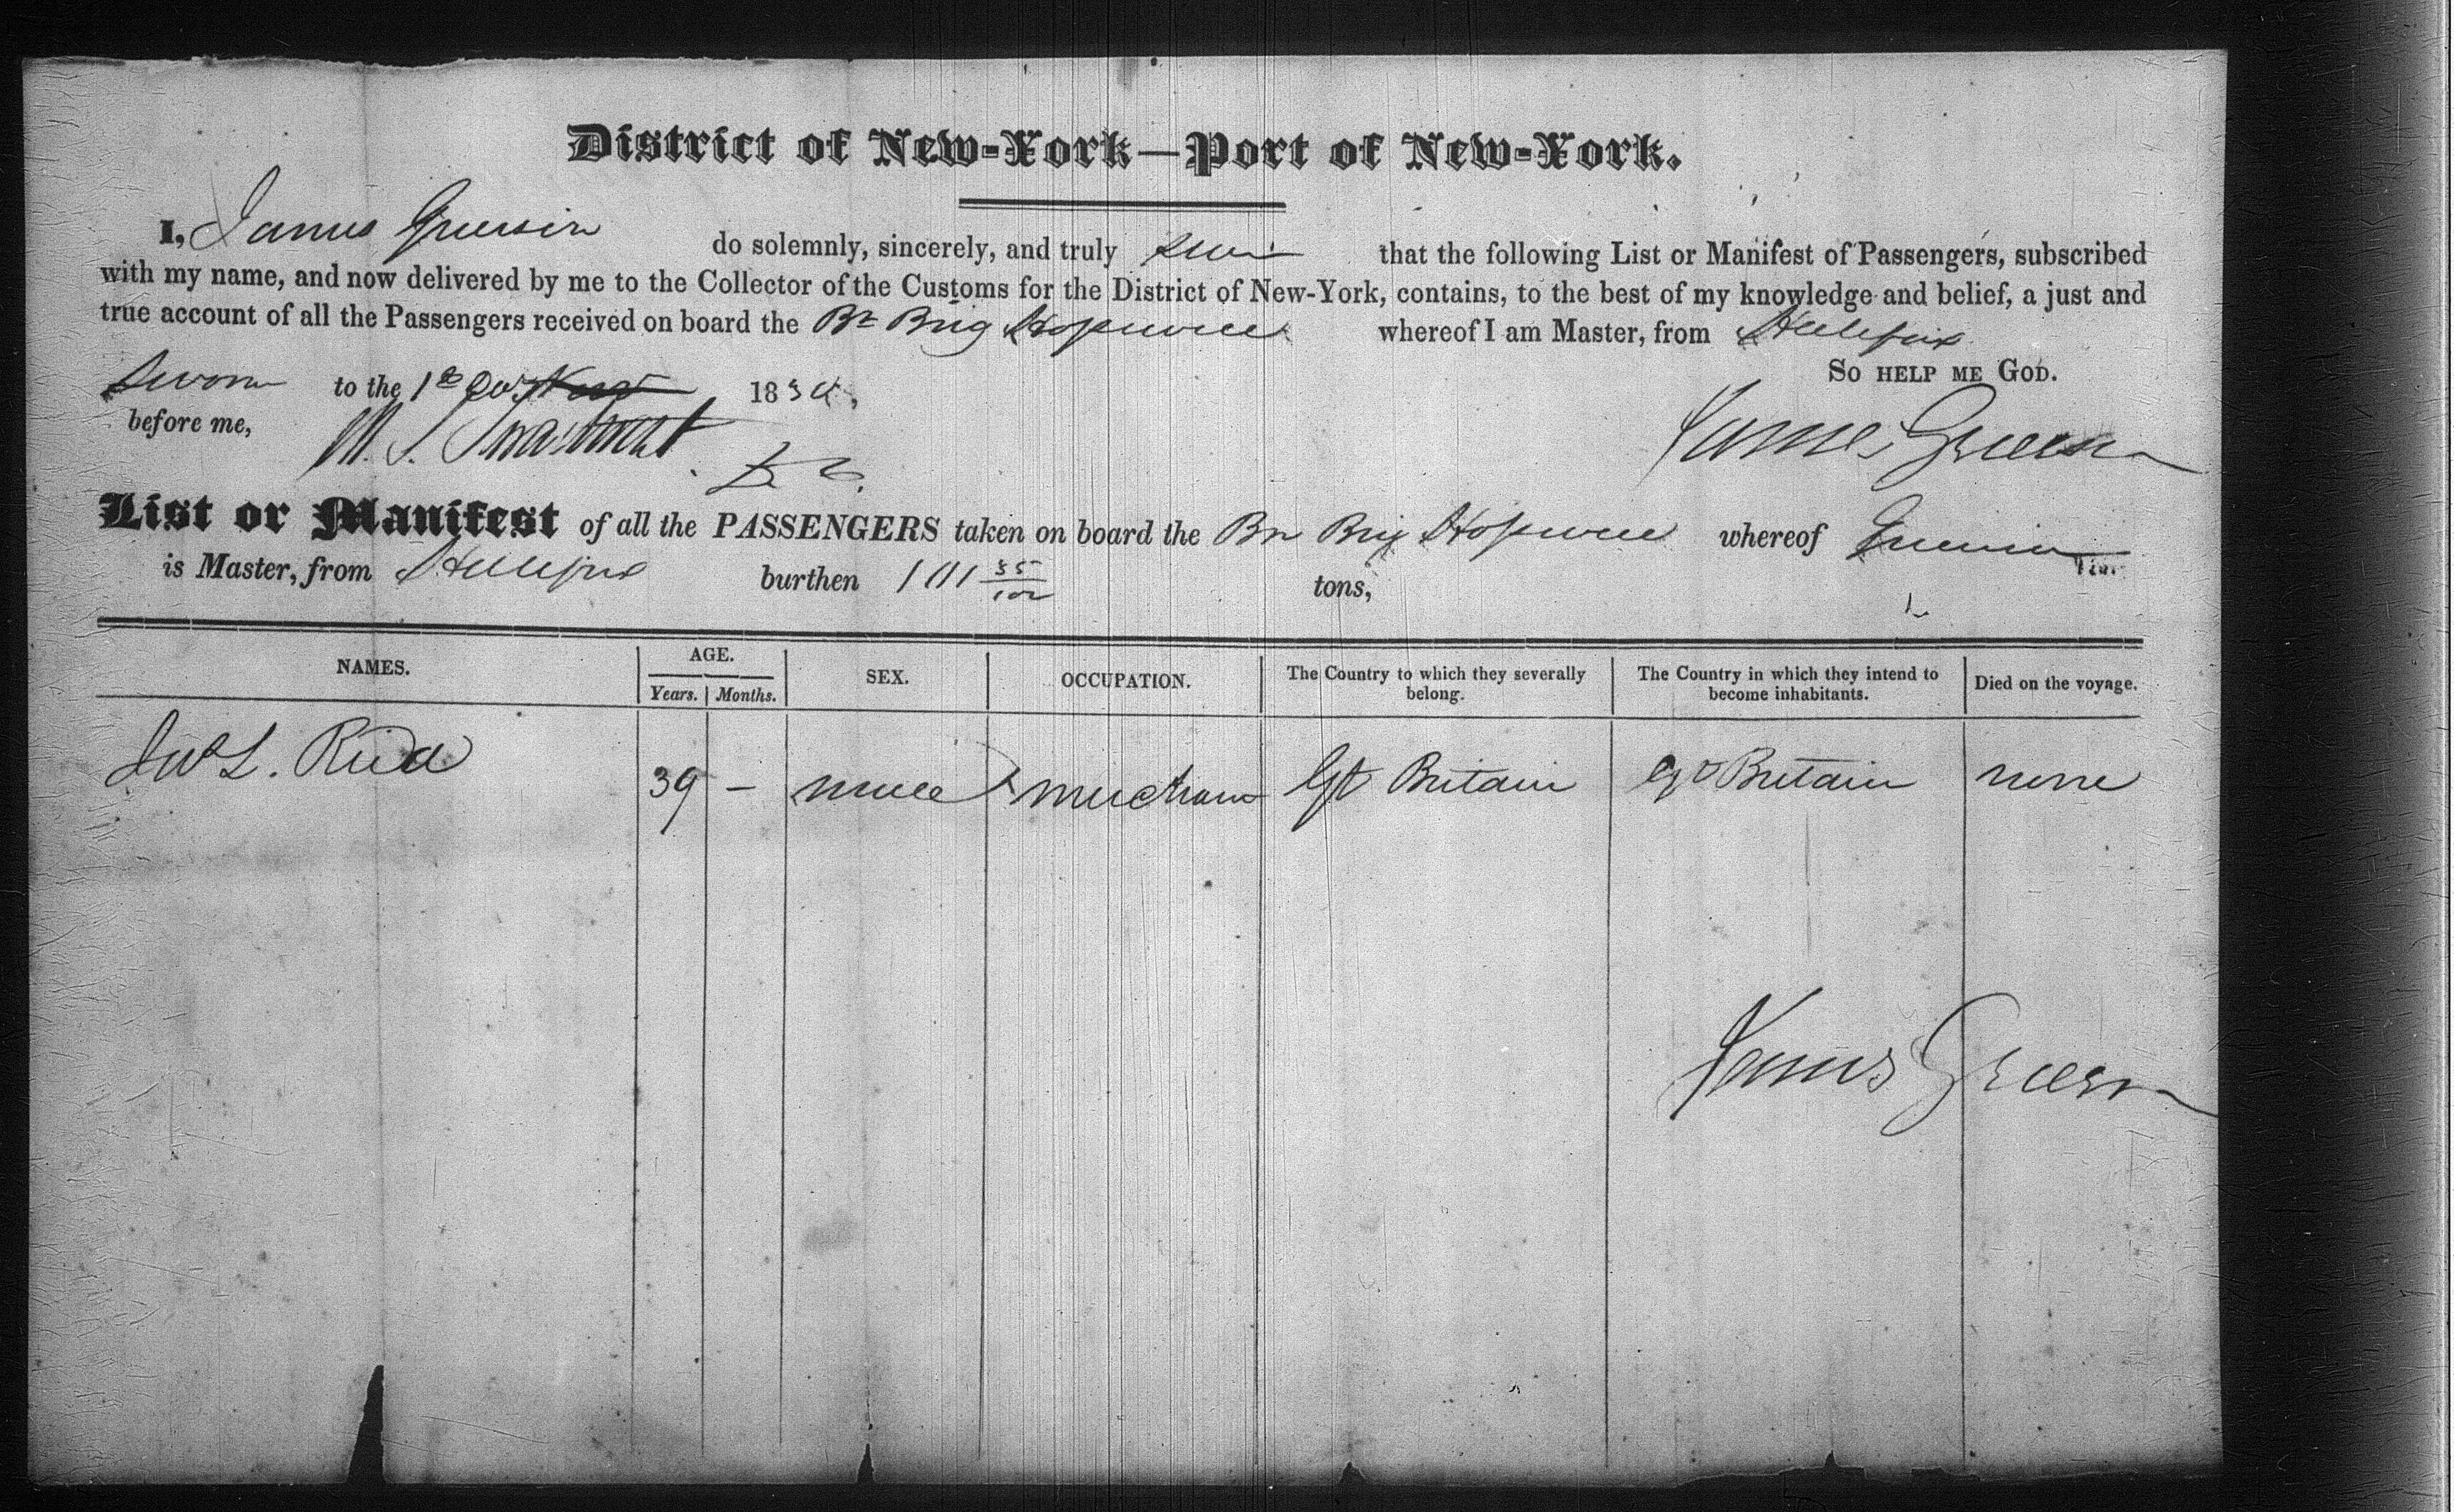 District of New-York—Port of New-York.
I, James do solemnly, sincerely, and truly that the following List or Manifest of Passengers, subscribed
with my name, and now delivered by me to the Collector of the Customs for the District of New-York, contains, to the best of my knowledge and belief, a just and
true account of all the Passengers received on board the Br Brig Hopewell whereof I am Master, from Halifax
So help me God.
Sworn to the 1st 183
before me,
James
List or Manifest of all the PASSENGERS taken on board the Br Brig Hopewell whereof
is Master, from Halifax burthen 111 35/100 tons,
NAMES. AGE. SEX. OCCUPATION. The Country to which they severally belong. The Country in which they intend to become inhabitants. Died on the voyage.
Years. Months.
L. 39 – male Gt Britain Gt Britain none
James